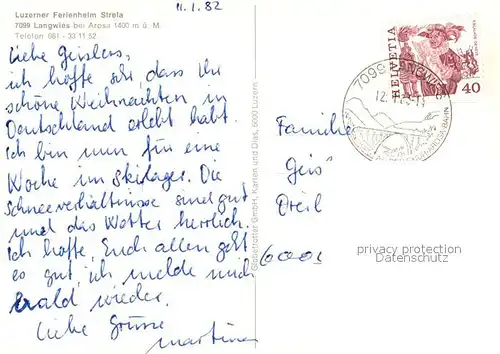 Luzerner Ferienheim Strela
7099 Langwies bei Arosa 1400 m ü. M.
Telefon 081 - 33 11 52
11.1.82
Liebe Geislers,
ich hoffe sehr dass Ihr
schöne Weihnachten in
Deutschland erlebt habt.
Ich bin nun für eine
Woche im Skilager. Die
Schneeverhältnisse sind gut
und das Wetter herrlich.
Ich hoffe, Euch allen geht
es gut, ich melde mich
bald wieder.
Liebe Grüsse
Martina
Globetrotter GmbH, Karten und Dias, 6000 Luzern
7099 LANGWIES
12.
HELVETIA
40
Familie
Geis
6000
privacy protection
Datenschutz